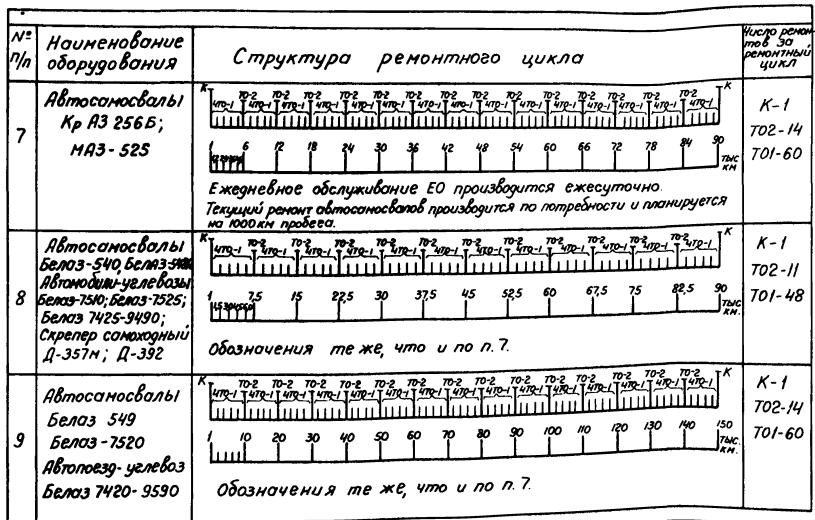 № п/п
Наименование оборудования
Структура ремонтного цикла
Число ремон-
тов за
ремонтный
цикл
7
Автосамосвалы
КрАЗ 256Б;
МАЗ-525
К ТО-2 ТО-2 ТО-2 ТО-2 ТО-2 ТО-2 ТО-2 ТО-2 ТО-2 ТО-2 ТО-2 ТО-2 ТО-2 ТО-2 К
4ТО-1 4ТО-1 4ТО-1 4ТО-1 4ТО-1 4ТО-1 4ТО-1 4ТО-1 4ТО-1 4ТО-1 4ТО-1 4ТО-1 4ТО-1 4ТО-1 4ТО-1
1 6 12 18 24 30 36 42 48 54 60 66 72 78 84 90 тыс км
Ежедневное обслуживание ЕО производится ежесуточно.
Текущий ремонт автосамосвалов производится по потребности и планируется
на 1000км пробега.
К-1
ТО2-14
ТО1-60
8
Автосамосвалы
Белаз-540,
Автомобили-углевозы
Белаз-7510; Белаз-7525;
Белаз 7425-9490;
Скрепер самоходный
Д-357м; Д-392
К ТО-2 ТО-2 ТО-2 ТО-2 ТО-2 ТО-2 ТО-2 ТО-2 ТО-2 ТО-2 ТО-2 К
4ТО-1 4ТО-1 4ТО-1 4ТО-1 4ТО-1 4ТО-1 4ТО-1 4ТО-1 4ТО-1 4ТО-1 4ТО-1 4ТО-1
1 7,5 15 22,5 30 37,5 45 52,5 60 67,5 75 82,5 90 тыс км.
Обозначения те же, что и по п. 7.
К-1
ТО2-11
ТО1-48
9
Автосамосвалы
Белаз 549
Белаз-7520
Автопоезд-углевоз
Белаз 7420-9590
К ТО-2 ТО-2 ТО-2 ТО-2 ТО-2 ТО-2 ТО-2 ТО-2 ТО-2 ТО-2 ТО-2 ТО-2 ТО-2 ТО-2 К
4ТО-1 4ТО-1 4ТО-1 4ТО-1 4ТО-1 4ТО-1 4ТО-1 4ТО-1 4ТО-1 4ТО-1 4ТО-1 4ТО-1 4ТО-1 4ТО-1 4ТО-1
1 10 20 30 40 50 60 70 80 90 100 110 120 130 140 150 тыс. км.
Обозначения те же, что и по п. 7.
К-1
ТО2-14
ТО1-60